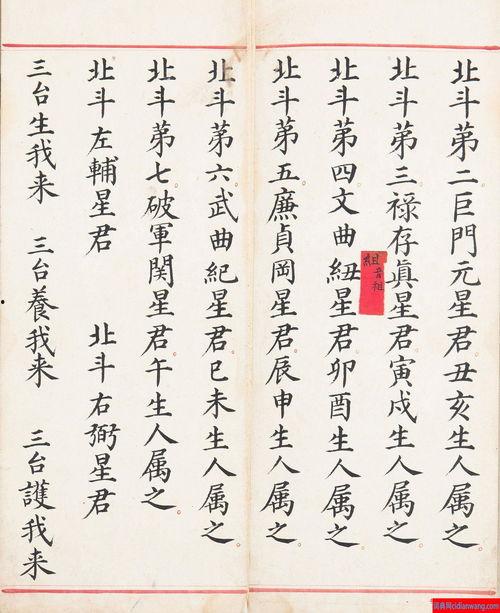 北斗苐二巨門元星君丑亥生人属之
北斗苐三禄存真星君寅戌生人属之
北斗苐四文曲紐星君卯酉生人属之
組音祖
北斗苐五廉貞岡星君辰申生人属之
北斗苐六武曲紀星君巳未生人属之
北斗苐七破軍関星君午生人属之
北斗左輔星君 北斗右弼星君
三台生我来 三台養我来 三台護我来
词典网cidianwang.com